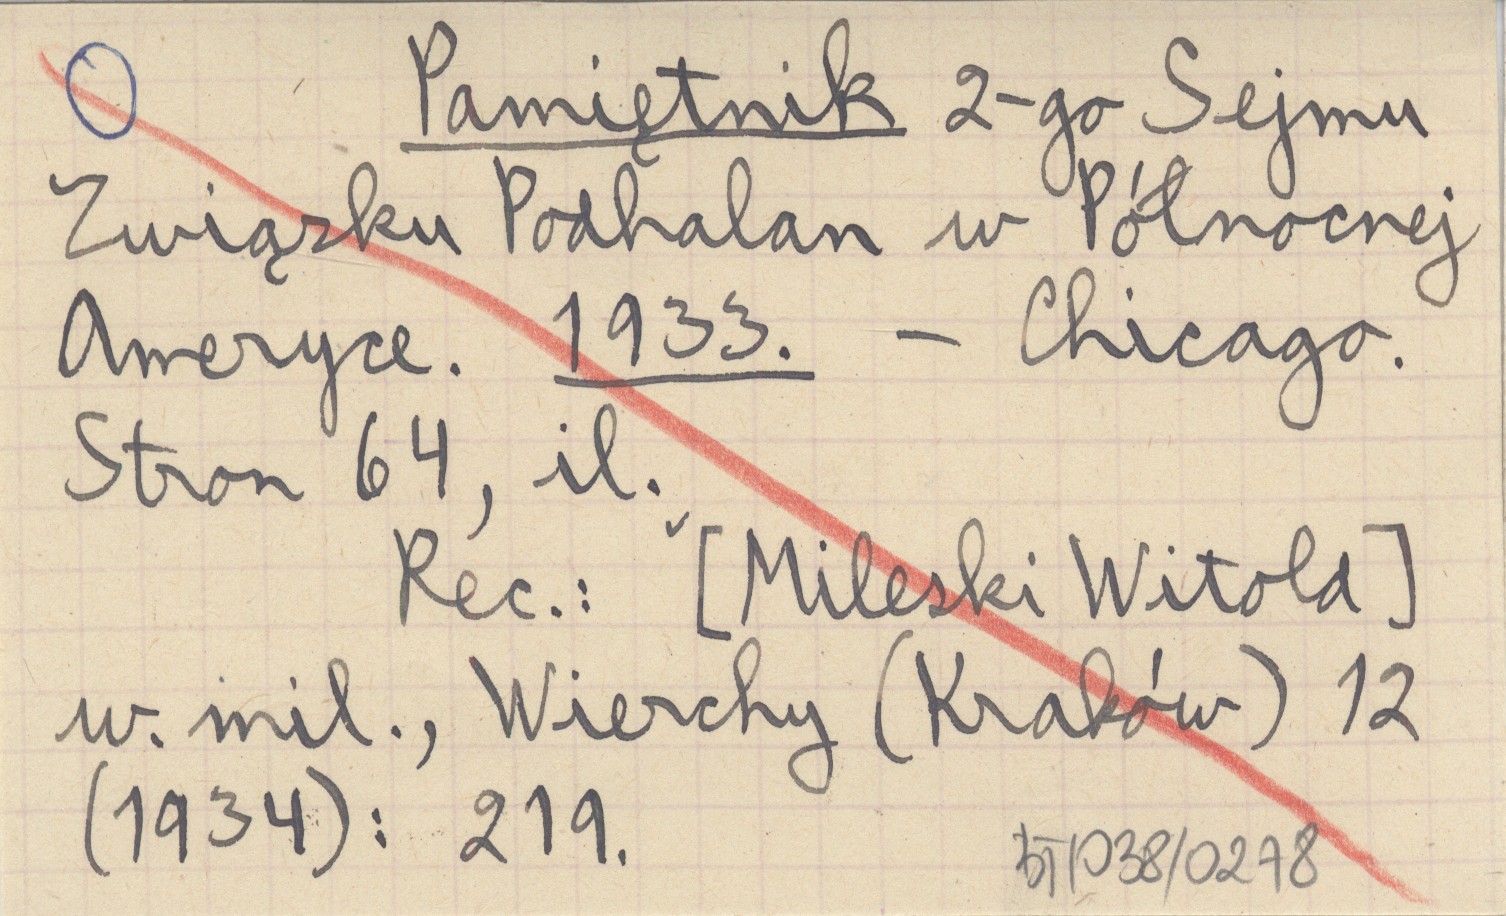 Pamiętnik 2-go Sejmu
Związku Podhalan w Północnej
Ameryce. 1933. - Chicago.
Stron 64, il.
Rec.: [Mileski Witold]
w. mil., Wierchy (Kraków) 12
(1934): 219.
038/0278